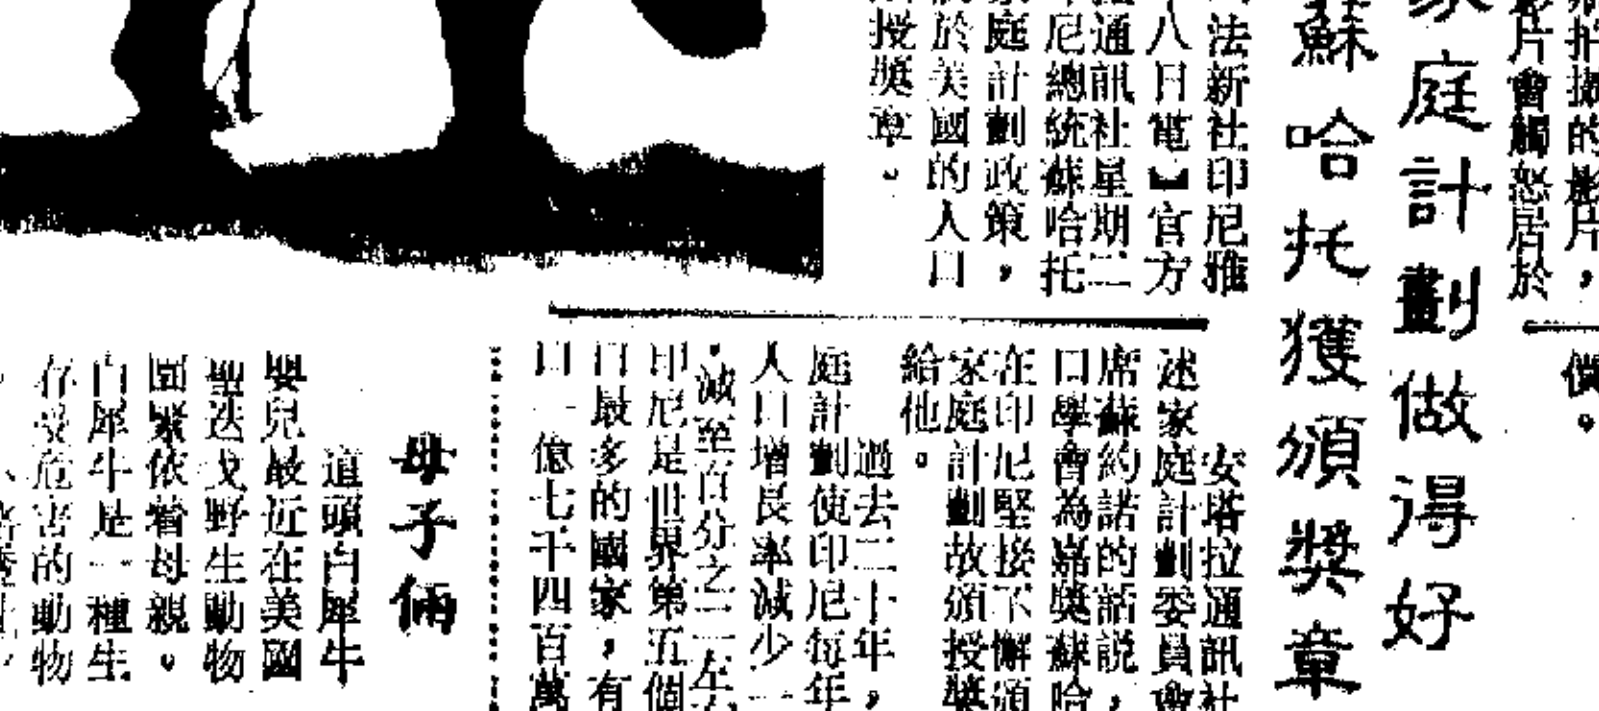 拍攝的影片，
影片會觸怒居於
價。
家庭計劃做得好
蘇哈托獲頒獎章
法新社印尼雅
八日電】官方
通訊社星期二
尼總統蘇哈托
家庭計劃政策，
於美國的人口
授獎章。
安塔拉通訊社
述家庭計劃委員會
席蘇約諾的話說，
口學會為嘉獎蘇哈
在印尼堅接不懈頒
家庭計劃故頒授獎
給他。
過去二十年，
庭計劃使印尼每年
人口增長率減少一
，減至百分之二左右
印尼是世界第五個
口最多的國家，有
口一億七千四百萬
母子倆
這頭白犀牛
嬰兒最近在美國
聖迭戈野生動物
園緊依着母親。
白犀牛是一種生
存受危害的動物